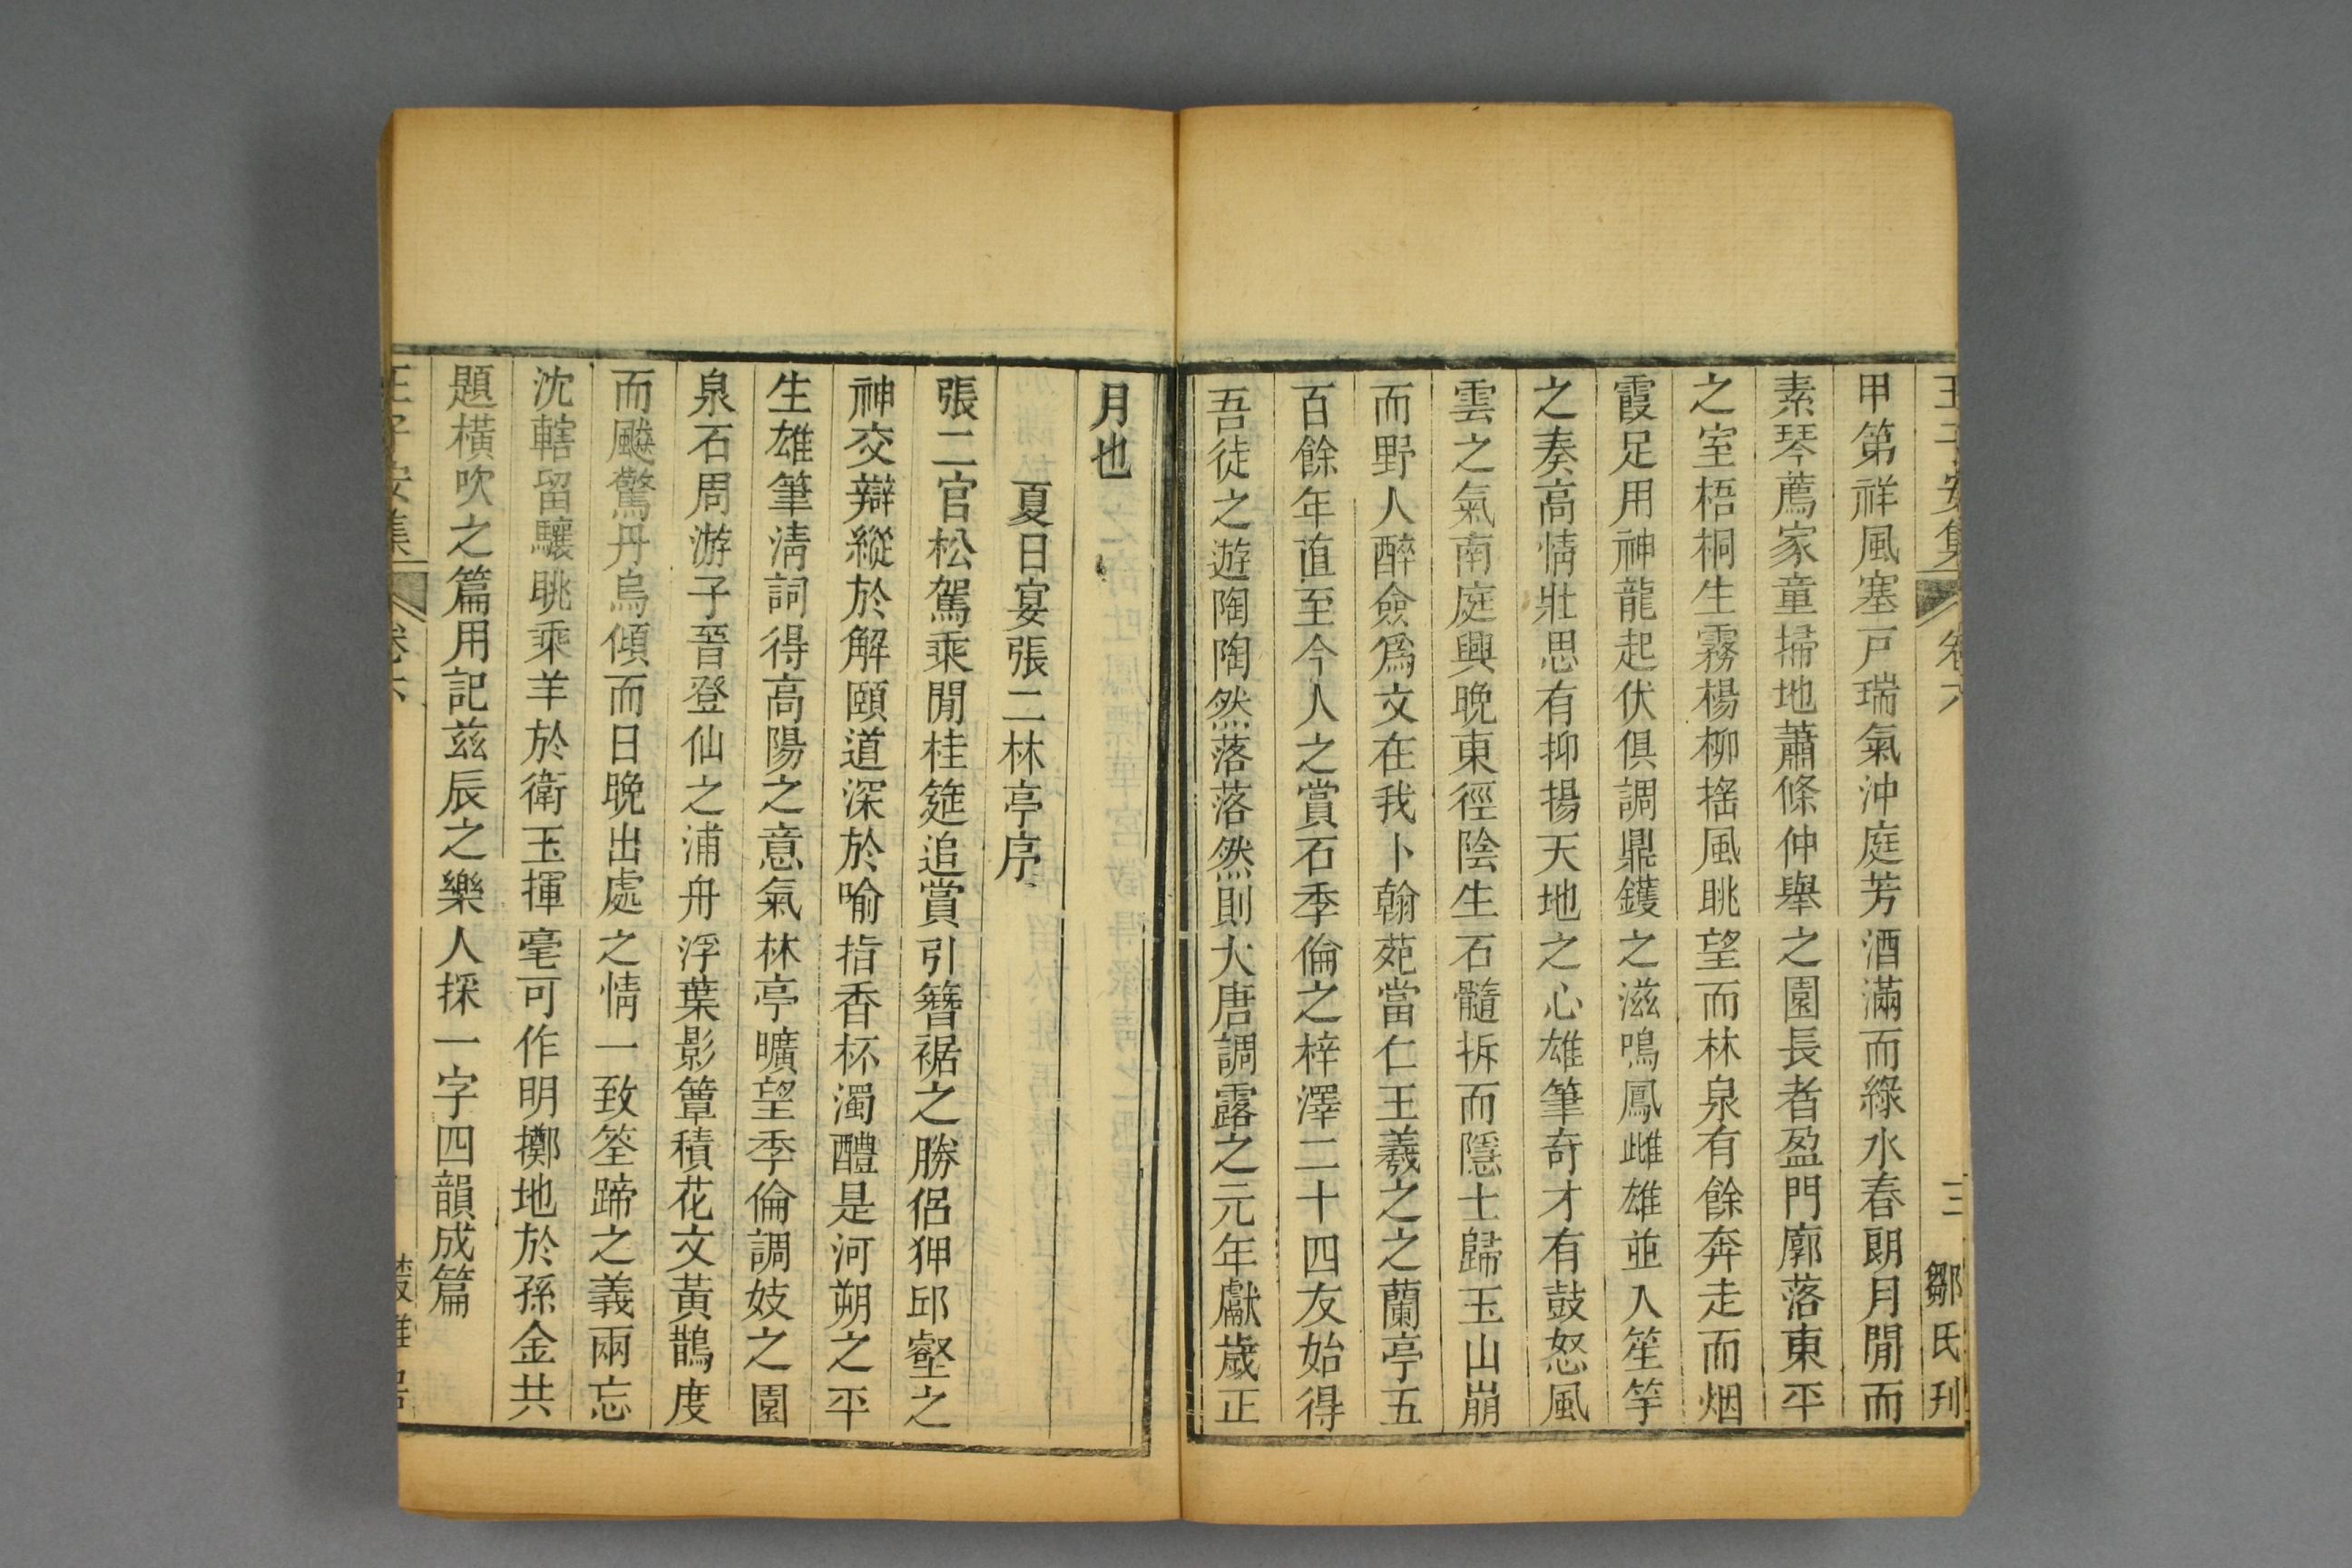 王子安集 卷六 三 鄒氏刊
甲第祥風塞戸瑞氣沖庭芳酒滿而綠水春朗月閒而
素琴薦家童掃地蕭條仲舉之園長者盈門廓落東平
之室梧桐生霧楊柳搖風眺望而林泉有餘奔走而烟
霞足用神龍起伏俱調鼎鑊之滋鳴鳳雌雄並入笙竽
之奏高情壯思有抑揚天地之心雄筆奇才有鼓怒風
雲之氣南庭興晚東徑陰生石髓拆而隱士歸玉山崩
而野人醉僉爲文在我卜翰苑當仁王羲之之蘭亭五
百餘年直至今人之賞石季倫之梓澤二十四友始得
吾徒之遊陶陶然落落然則大唐調露之元年獻歲正
月也
夏日宴張二林亭序
張二官松駕乘閒桂筵追賞引簪裾之勝侶狎邱壑之
神交辯縱於解頤道深於喻指香杯濁醴是河朔之平
生雄筆淸詞得高陽之意氣林亭曠望季倫調妓之園
泉石周游子晉登仙之浦舟浮葉影簟積花文黃鵲度
而飈驚丹烏傾而日晚出處之情一致筌蹄之義兩忘
沈轄留驤眺乘羊於衛玉揮毫可作明擲地於孫金共
題橫吹之篇用記兹辰之樂人採一字四韻成篇
王子安集 卷六